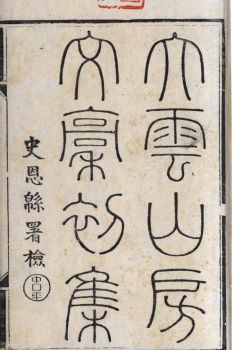 大雲山房
文稾初集
史恩緜署檢